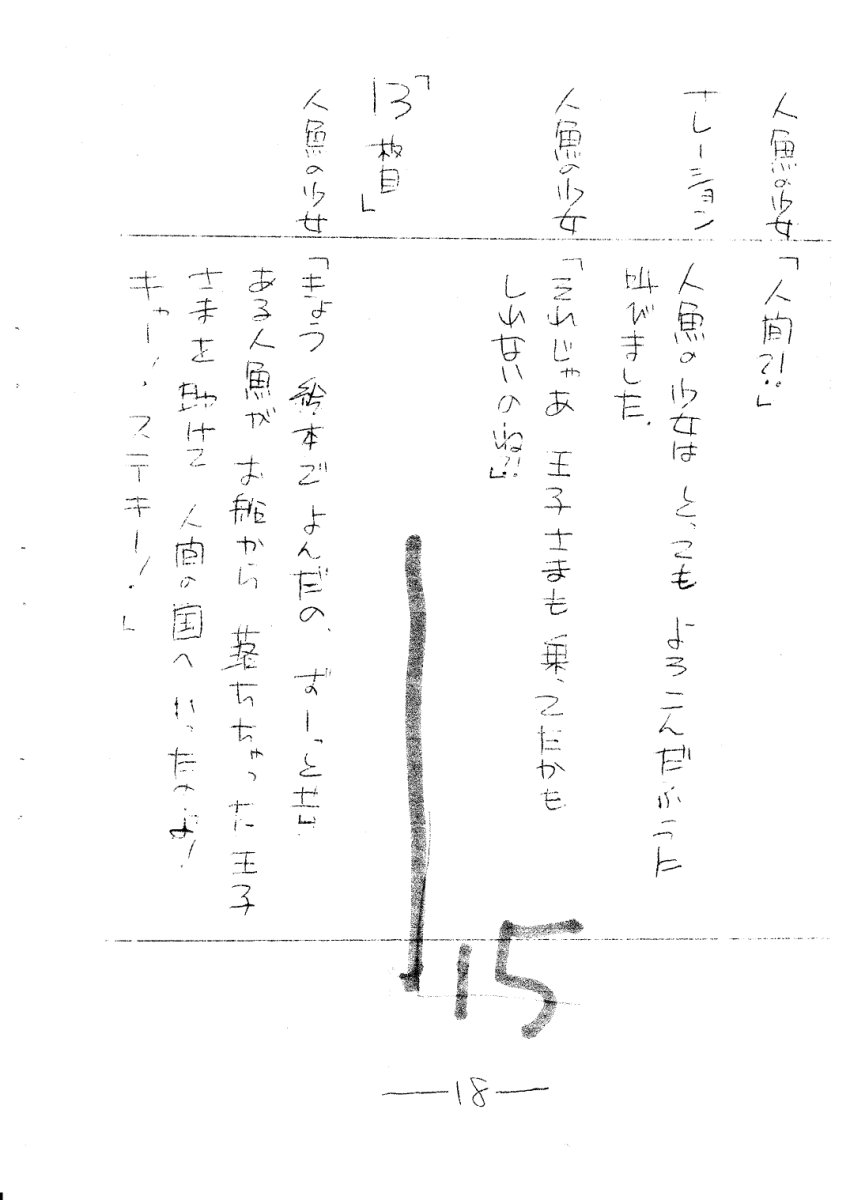 人魚の少女「人間?!」
ナレーション 人魚の少女は とっても よろこんだふうに
叫びました.
人魚の少女「それじゃあ 王子さまも 乗ってたかも
しれないのね?!」
「13枚目」
人魚の少女「きょう 絵本で よんだの. ずーっと昔
ある人魚が お船から 落ちちゃった王子
さまを 助けて 人間の国へ いったのよ!
キャー! ステキー!」
15
—18—